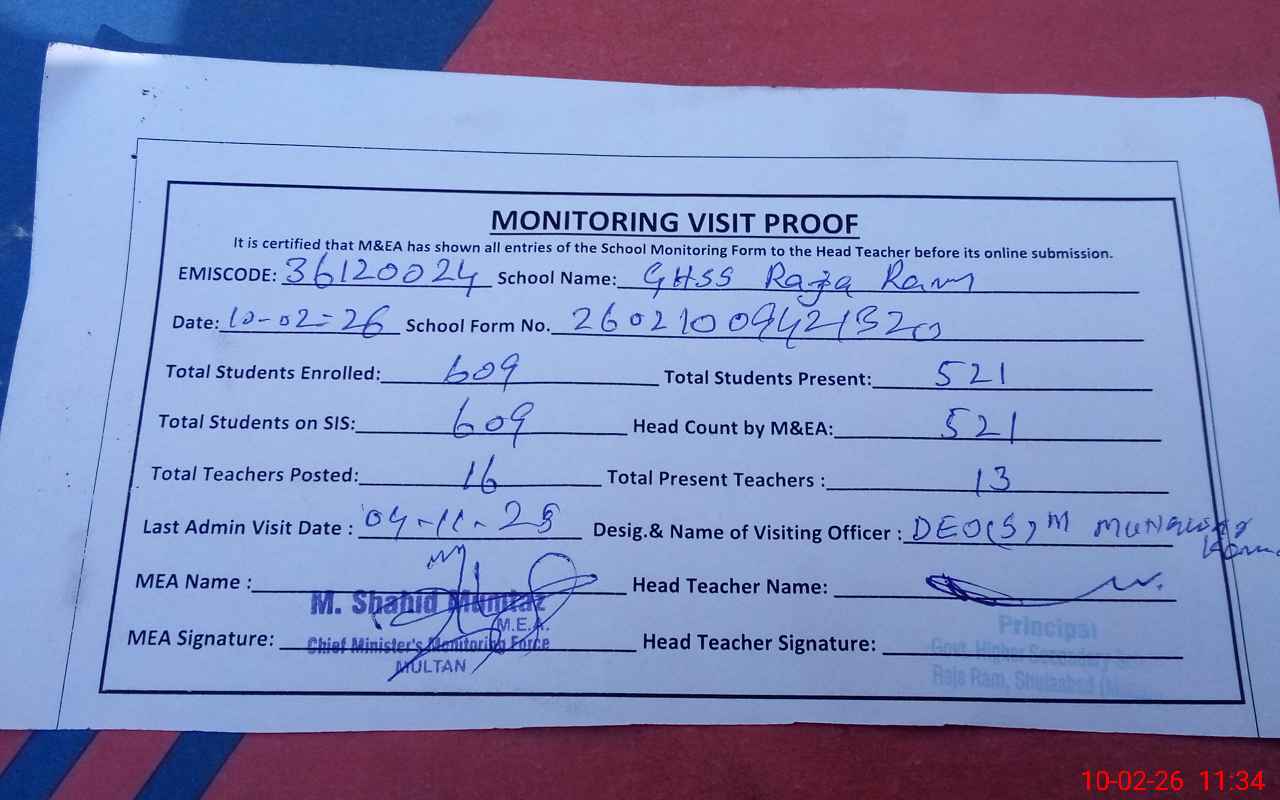 MONITORING VISIT PROOF
It is certified that M&EA has shown all entries of the School Monitoring Form to the Head Teacher before its online submission.
EMISCODE: 36120024 School Name: GHSS Raja Ram
Date: 10-02-26 School Form No. 26021009421320
Total Students Enrolled: 609 Total Students Present: 521
Total Students on SIS: 609 Head Count by M&EA: 521
Total Teachers Posted: 16 Total Present Teachers : 13
Last Admin Visit Date : 04-11-25 Desig.& Name of Visiting Officer : DEO(S) M
MEA Name : Head Teacher Name:
M. Shahid Mumtaz
M.E.A.
MEA Signature: Head Teacher Signature:
Chief Minister's Monitoring Force
MULTAN
Principal
Govt. Higher Secondary
Raja Ram, Shujaabad
10-02-26 11:34